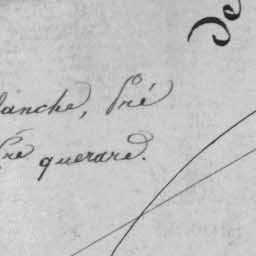 de
lanche, Pré
Pre querard.